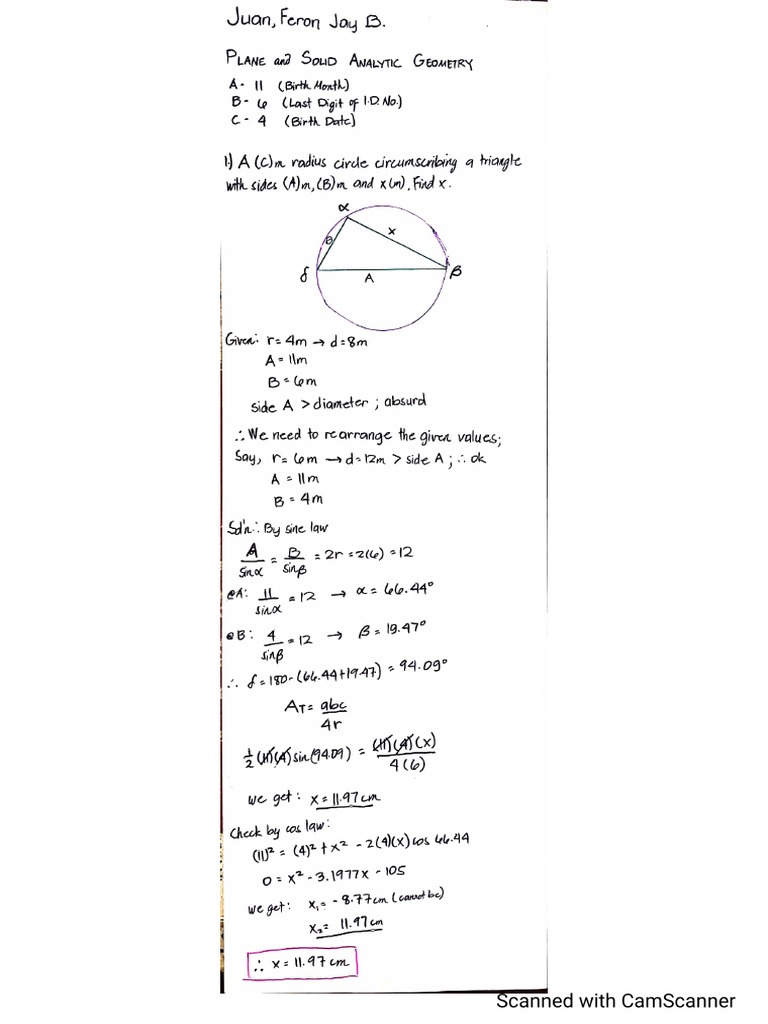 Juan, Feron Jay B.
PLANE and SOLID ANALYTIC GEOMETRY
A - 11 (Birth Month)
B - 6 (Last Digit of I.D. No.)
C - 4 (Birth Date)
1) A (C)m radius circle circumscribing a triangle
with sides (A)m, (B)m and x(m). Find x.
α
B x
δ β
A
Given: r = 4m → d = 8m
A = 11m
B = 6m
side A > diameter ; absurd
∴ We need to rearrange the given values;
Say, r = 6m → d = 12m > side A ; ∴ ok
A = 11m
B = 4m
Sol'n: By sine law
A/sinα = B/sinβ = 2r = 2(6) = 12
@A: 11/sinα = 12 → α = 66.44°
@B: 4/sinβ = 12 → β = 19.47°
∴ δ = 180 - (66.44 + 19.47) = 94.09°
AT = abc/4r
1/2 (11)(4) sin(94.09) = (11)(4)(x)/4(6)
we get: x = 11.97 cm
Check by cos law:
(11)² = (4)² + x² - 2(4)(x) cos 66.44
0 = x² - 3.1977x - 105
we get: x₁ = - 8.77 cm (cannot be)
x₂ = 11.97 cm
∴ x = 11.97 cm
Scanned with CamScanner